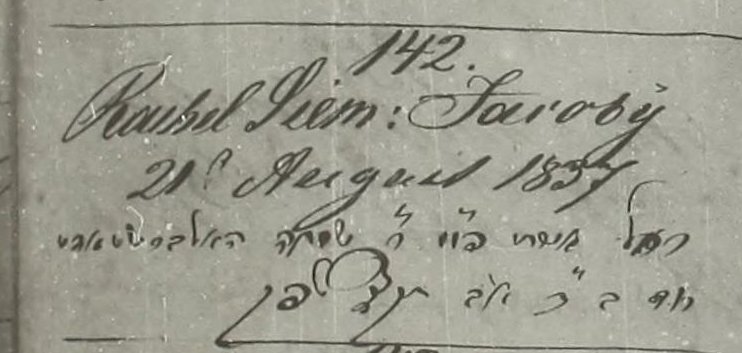 142.
Rachel Siem: Jacobÿ
21t August 1837
רחל אשת ר' שמחה האלברשטאדט
ב כ" אב תקצ לפק